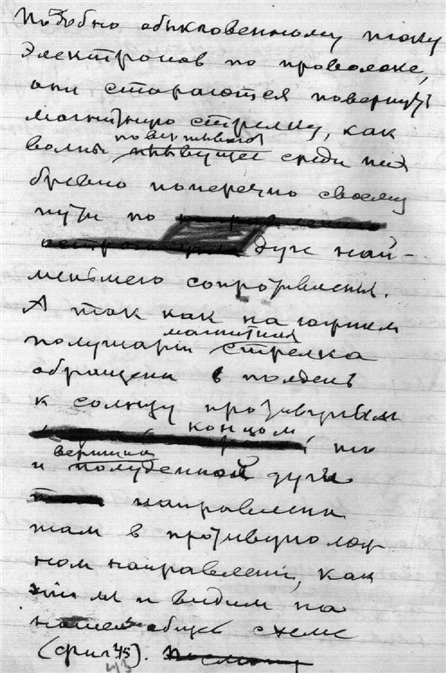 Подобно обыкновенному току
электронов по проволоке,
они стараются повернуть
магнитную стрелку, как
повертывают
волны плывущее среди них
бревно поперечно своему
пути по
дуге най-
меньшего сопротивления.
А так как на южном
магнитная
полушарии стрелка
обращена в полдень
к солнцу противуполож
концом, то
вершина
и полуденной дуги
направлена
там в противуполож
ном направлении, как
это мы и видим на
нашей общей схеме
(фиг 45).
43